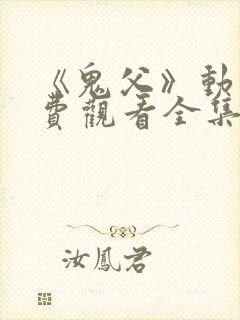 《鬼父》動
費觀看全集
汝鳳君